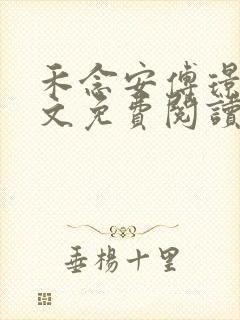 禾念安傅璟
文免費閱讀
垂楊十里